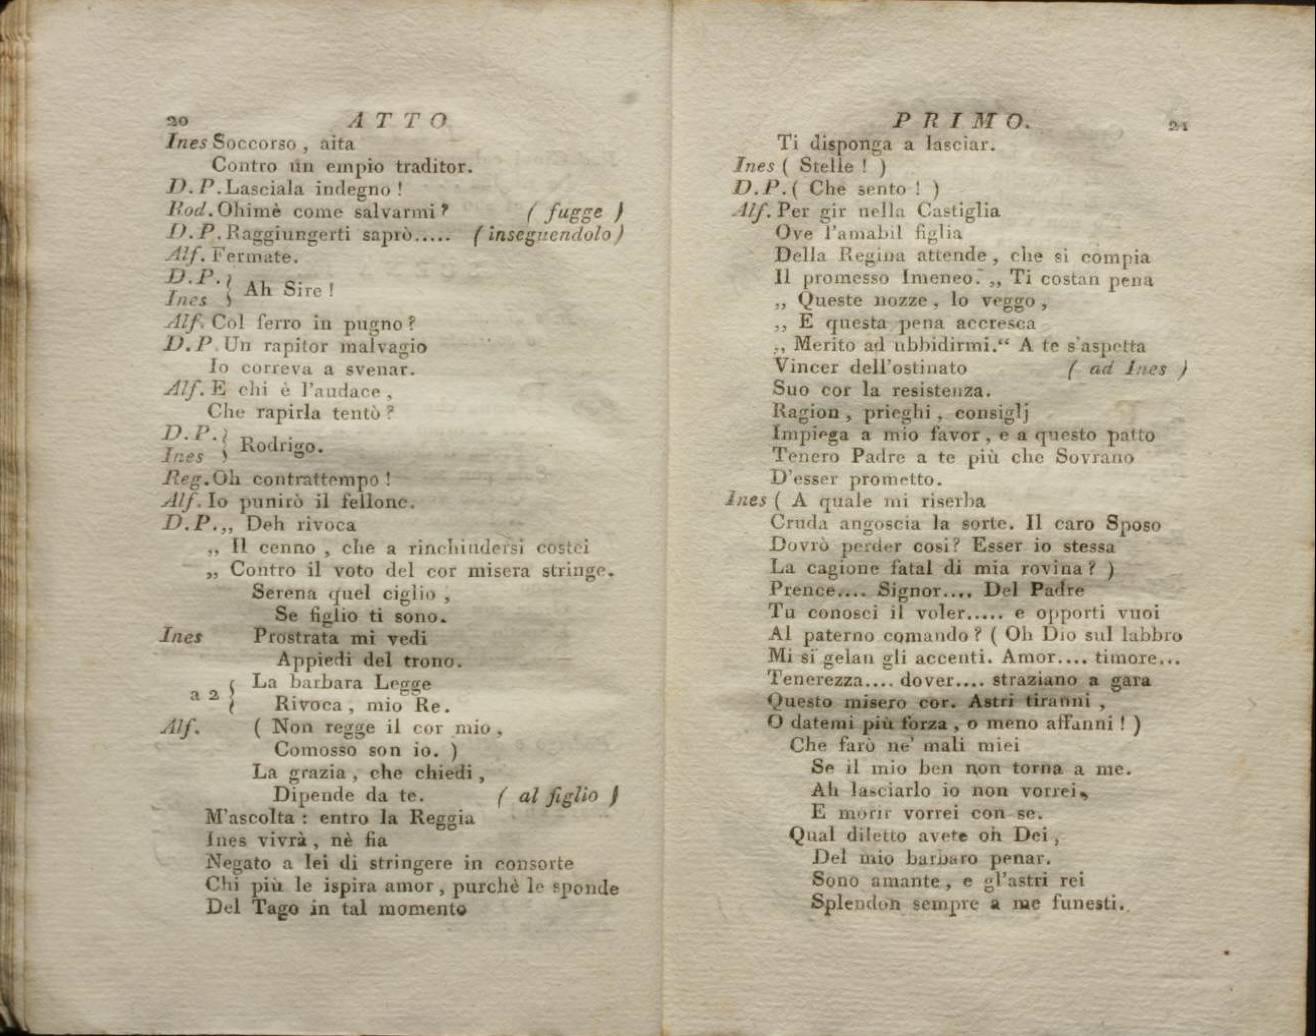 20 ATTO
Ines Soccorso, aita
Contro un empio traditor.
D. P. Lasciala indegno!
Rod. Ohimè come salvarmi? ( fugge )
D. P. Raggiungerti saprò..... ( inseguendolo )
Alf. Fermate.
D. P. } Ah Sire!
Ines
Alf. Col ferro in pugno?
D. P. Un rapitor malvagio
Io correva a svenar.
Alf. E chi è l'audace,
Che rapirla tentò?
D. P. } Rodrigo.
Ines
Reg. Oh contrattempo!
Alf. Io punirò il fellone.
D. P. „ Deh rivoca
„ Il cenno, che a rinchiudersi costei
„ Contro il voto del cor misera stringe.
Serena quel ciglio,
Se figlio ti sono.
Ines Prostrata mi vedi
Appiedi del trono.
a 2 { La barbara Legge
Rivoca, mio Re.
Alf. ( Non regge il cor mio,
Comosso son io. )
La grazia, che chiedi,
Dipende da te. ( al figlio )
M'ascolta: entro la Reggia
Ines vivrà, nè fia
Negato a lei di stringere in consorte
Chi più le ispira amor, purchè le sponde
Del Tago in tal momento
PRIMO. 21
Ti disponga a lasciar.
Ines ( Stelle! )
D. P. ( Che sento! )
Alf. Per gir nella Castiglia
Ove l'amabil figlia
Della Regina attende, che si compia
Il promesso Imeneo. „ Ti costan pena
„ Queste nozze, lo veggo,
„ E questa pena accresca
„ Merito ad ubbidirmi.“ A te s'aspetta
Vincer dell'ostinato ( ad Ines )
Suo cor la resistenza.
Ragion, prieghi, consiglj
Impiega a mio favor, e a questo patto
Tenero Padre a te più che Sovrano
D'esser prometto.
Ines ( A quale mi riserba
Cruda angoscia la sorte. Il caro Sposo
Dovrò perder cosi? Esser io stessa
La cagione fatal di mia rovina? )
Prence.... Signor.... Del Padre
Tu conosci il voler..... e opporti vuoi
Al paterno comando? ( Oh Dio sul labbro
Mi si gelan gli accenti. Amor.... timore...
Tenerezza.... dover.... straziano a gara
Questo misero cor. Astri tiranni,
O datemi più forza, o meno affanni! )
Che farò ne' mali miei
Se il mio ben non torna a me.
Ah lasciarlo io non vorrei,
E morir vorrei con se.
Qual diletto avete oh Dei,
Del mio barbaro penar.
Sono amante, e gl'astri rei
Splendon sempre a me funesti.